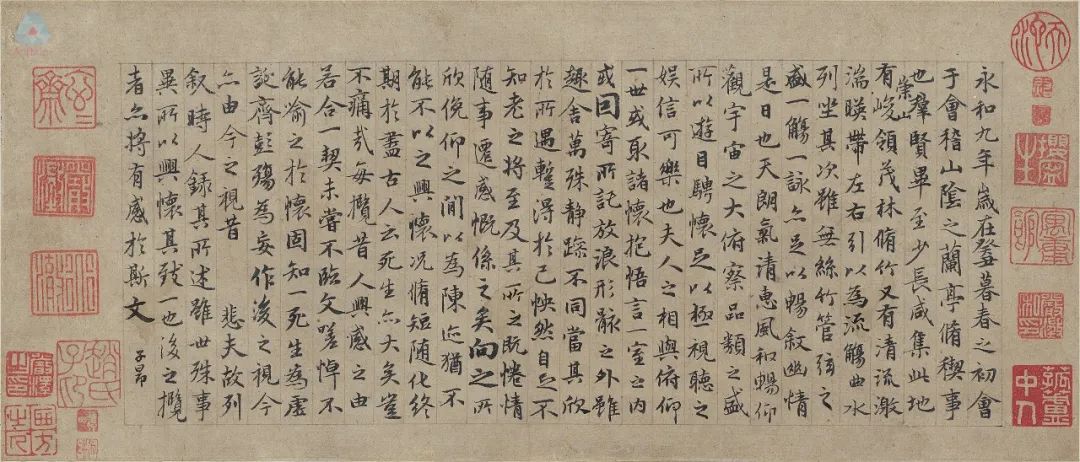 永和九年歲在癸丑暮春之初會
于會稽山陰之蘭亭脩稧事
也羣賢畢至少長咸集此地
有崇山峻領茂林脩竹又有清流激
湍暎帶左右引以為流觴曲水
列坐其次雖無絲竹管弦之
盛一觴一詠亦足以暢敘幽情
是日也天朗氣清惠風和暢仰
觀宇宙之大俯察品類之盛
所以遊目騁懷足以極視聽之
娛信可樂也夫人之相與俯仰
一世或取諸懷抱悟言一室之內
或因寄所託放浪形骸之外雖
趣舍萬殊静躁不同當其欣
於所遇蹔得於己怏然自足不
知老之將至及其所之既惓情
随事遷感慨係之矣向之所
欣俛仰之閒以為陳迹猶不
能不以之興懷况脩短随化終
期於盡古人云死生亦大矣豈
不痛哉每攬昔人興感之由
若合一契未嘗不臨文嗟悼不
能喻之於懷固知一死生為虛
誕齊彭殤為妄作後之視今
亦由今之視昔 悲夫故列
敘時人錄其所述雖世殊事
異所以興懷其致一也後之攬
者亦將有感於斯文 子昂
趙氏子昂